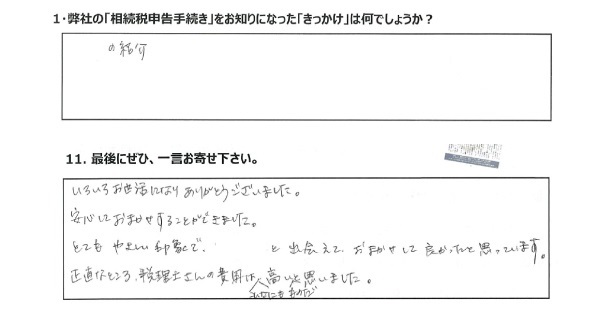 1・弊社の「相続税申告手続き」をお知りになった「きっかけ」は何でしょうか？
の紹介
11. 最後にぜひ、一言お寄せ下さい。
いろいろお世話になりありがとうございました。
安心しておまかせすることができました。
とても やさしい印象で、 と 出会えて、おまかせして良かったと思っています。
正直なところ、税理士さんの費用は高いと思いました。